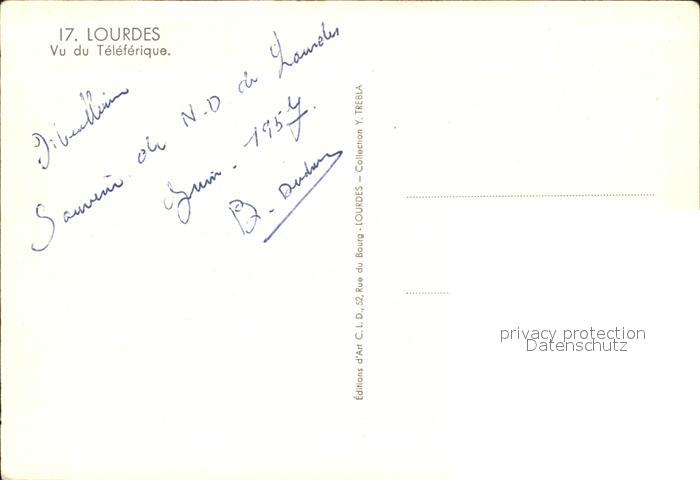 17. LOURDES
Vu du Téléférique.
Souvenir de N.D de Lourdes
Juin - 1957.
B.
Éditions d'Art C. L. D., 52, Rue du Bourg - LOURDES — Collection Y. TREBLA
privacy protection
Datenschutz